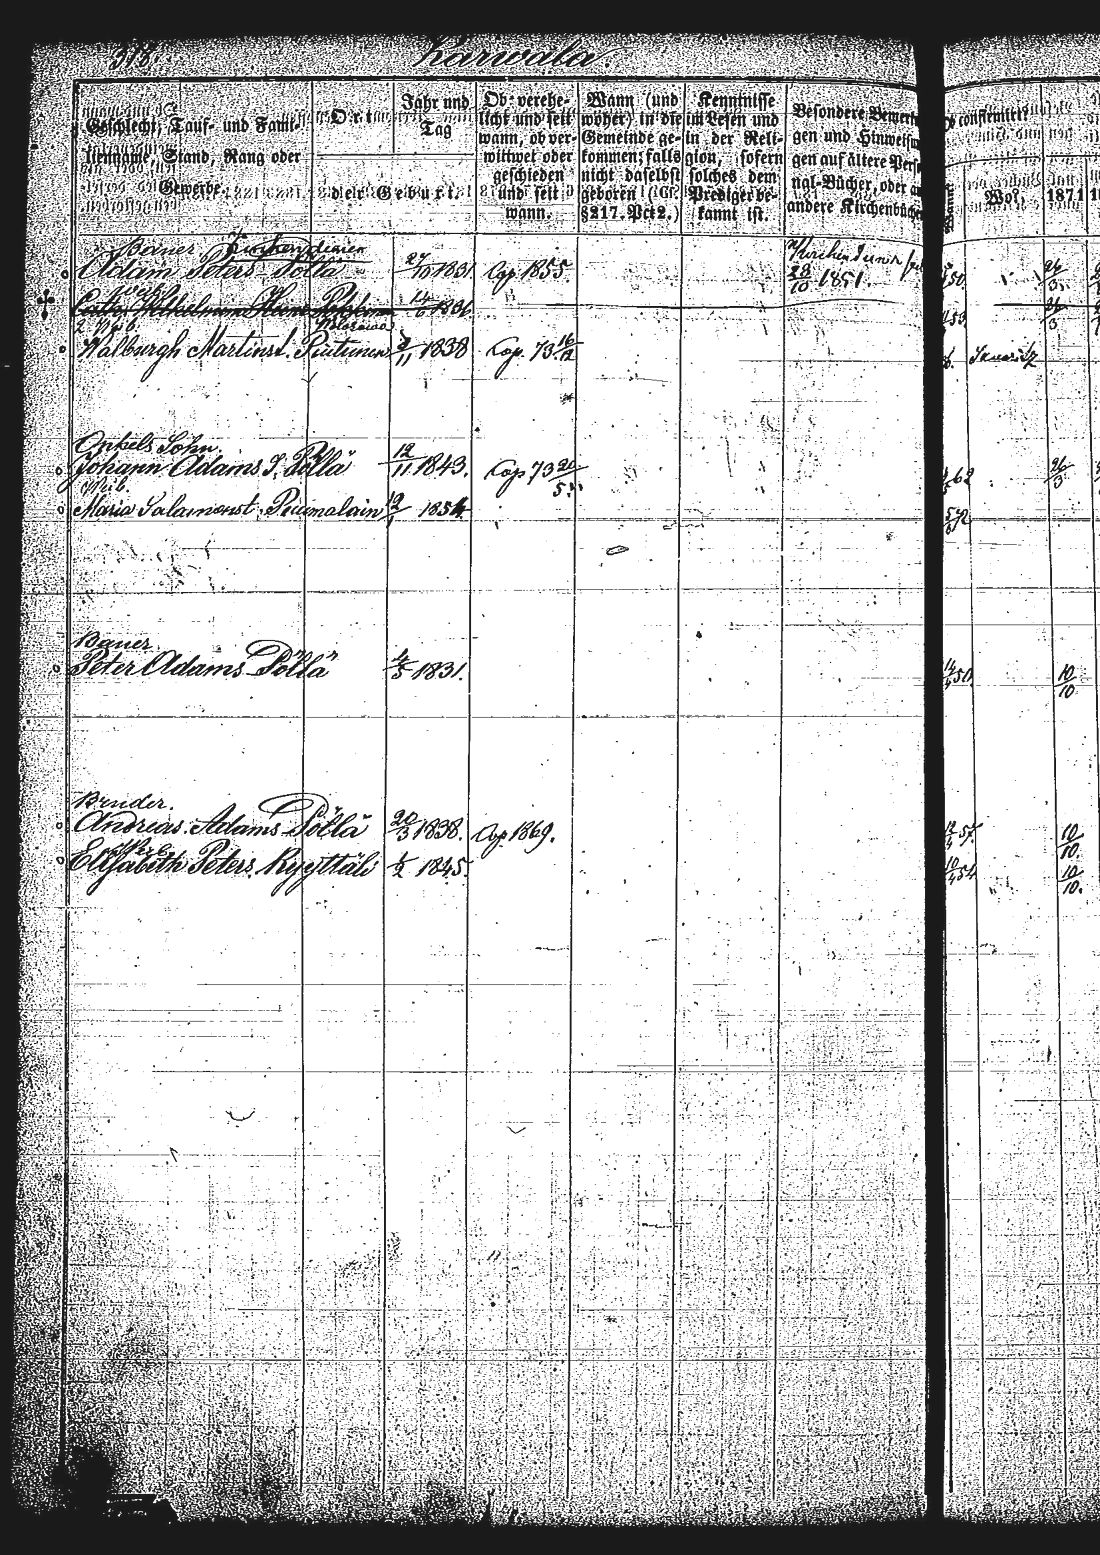 318.
Karwala.
Geschlecht, Tauf- und Fami-
lienname, Stand, Rang oder
Gewerbe.
Ort
Jahr und
Tag
der Geburt.
Ob verehe-
licht und seit
wann, ob ver-
wittwet oder
geschieden
und seit
wann.
Wann (und
woher) in die
Gemeinde ge-
kommen; falls
nicht daselbst
geboren
§217. Pct 2.)
Kenntnisse
im Lesen und
in der Reli-
gion, sofern
solches dem
Prediger be-
kannt ist.
Besondere Bemerk
gen und Hinweisu
gen auf ältere Perso
nal-Bücher, oder a
andere Kirchenbücher
Ob confirmirt?
Wann?
Wo?
1871
Bauer
Adam Peters Pöllä 27/10 1831 Cop 1855.
28/10 1851.
Weib
14/6 1836
2 Weib
Walburgh Martinst. Piutunen 3/11 1838 Cop. 73 16/12
Onkels Sohn.
Johann Adams S. Pöllä 12/11 1843. Cop 73 20/5. 62 26/3
Weib.
Maria Salamonst. 12/1 1854 5/6 72
Bauer
Peter Adams Pöllä 4/5 1831. 14/4 50 10/10
Bruder.
Andreas Adams Pöllä 20/3 1838. Cop. 1869. 57 10/10.
Weib
Elisabeth Peters. Kyyttäli 4/2 1845. 10/4 54 10/10.